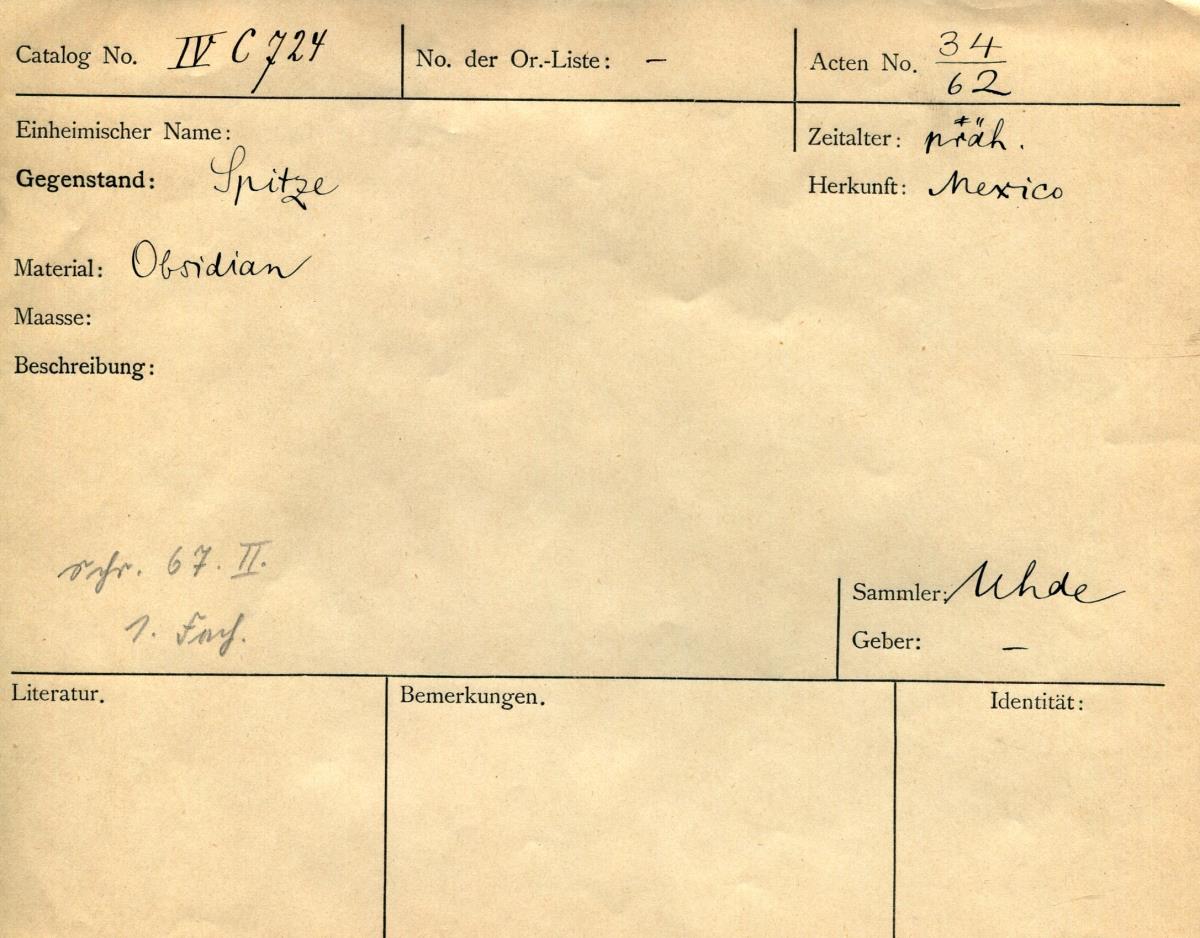 Catalog No. IV C 724
No. der Or.-Liste: —
Acten No. 34/62
Einheimischer Name:
Zeitalter: präh.
Gegenstand: Spitze
Herkunft: Mexico
Material: Obsidian
Maasse:
Beschreibung:
Schr. 67. II.
1. Fach.
Sammler: Uhde
Geber: —
Literatur.
Bemerkungen.
Identität: